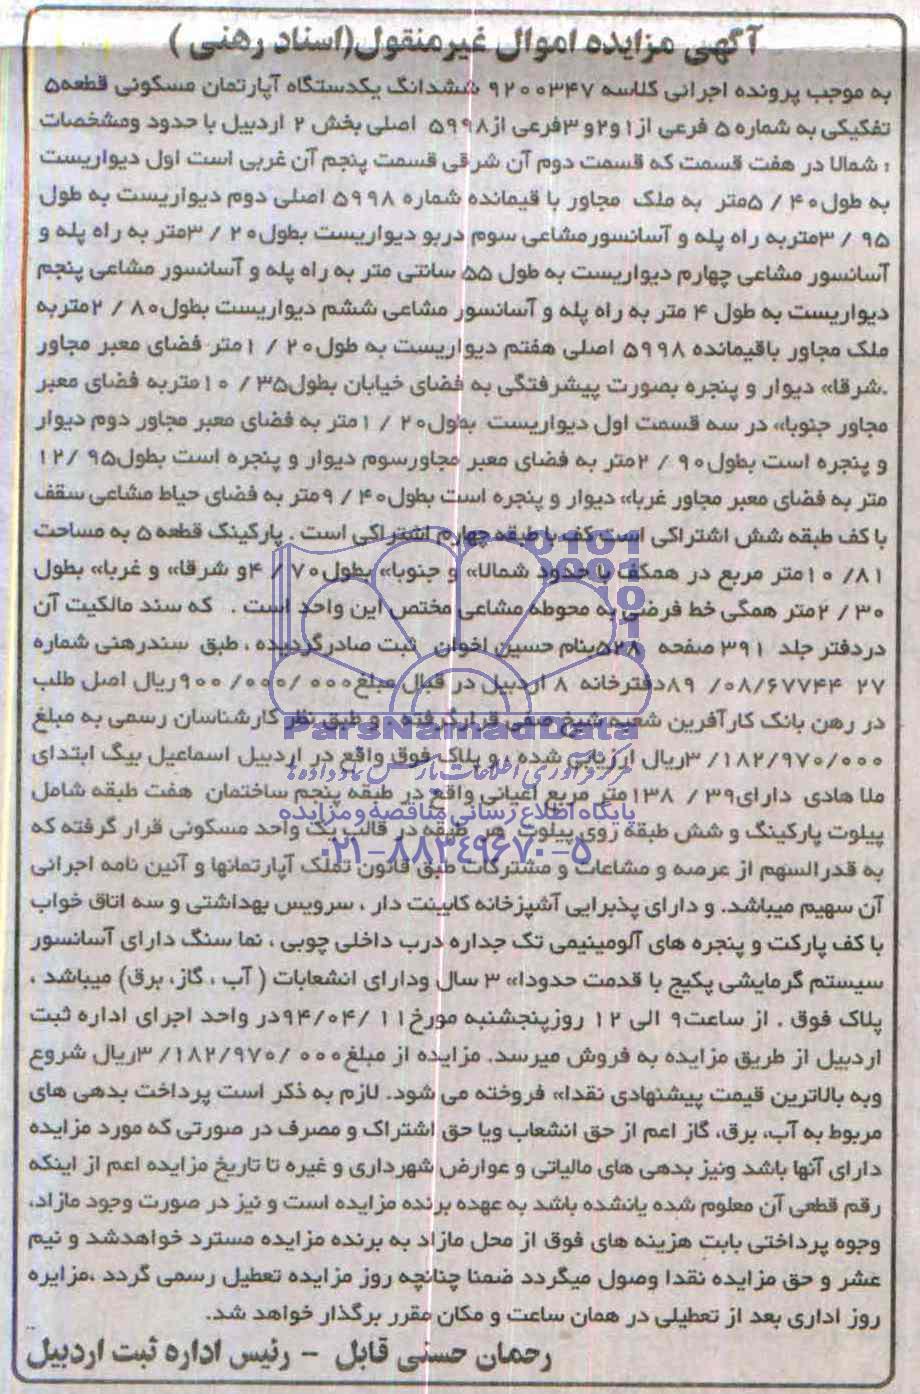 آگهی مزایده اموال غیرمنقول(اسناد رهنی )
به موجب پرونده اجرائی کلاسه ۹۲۰۰۳۴۷ ششدانگ یکدستگاه آپارتمان مسکونی قطعه۵
تفکیکی به شماره ۵ فرعی از۱و۲و ۳فرعی از۵۹۹۸ اصلی بخش ۲ اردبیل با حدود ومشخصات
: شمالا در هفت قسمت که قسمت دوم آن شرقی قسمت پنجم آن غربی است اول دیواریست
به طول۴۰ / ۵متر به ملک مجاور با قیمانده شماره ۵۹۹۸ اصلی دوم دیواریست به طول
۹۵ / ۳متربه راه پله و آسانسورمشاعی سوم دربو دیواریست بطول۲۰ / ۳متر به راه پله و
آسانسور مشاعی چهارم دیواریست به طول ۵۵ سانتی متر به راه پله و آسانسور مشاعی پنجم
دیواریست به طول ۴ متر به راه پله و آسانسور مشاعی ششم دیواریست بطول۸۰ / ۲متربه
ملک مجاور باقیمانده ۵۹۹۸ اصلی هفتم دیواریست به طول۲۰ / ۱متر فضای معبر مجاور
.شرقا» دیوار و پنجره بصورت پیشرفتگی به فضای خیابان بطول۳۵ / ۱۰متربه فضای معبر
مجاور جنوبا» در سه قسمت اول دیواریست بطول۲۰ / ۱متر به فضای معبر مجاور دوم دیوار
و پنجره است بطول۹۰ / ۲متر به فضای معبر مجاورسوم دیوار و پنجره است بطول۹۵ /۱۲
متر به فضای معبر مجاور غربا» دیوار و پنجره است بطول۴۰ / ۹متر به فضای حیاط مشاعی سقف
با کف طبقه شش اشتراکی است کف با طبقه چهارم اشتراکی است . پارکینک قطعه ۵ به مساحت
۸۱/ ۱۰متر مربع در همکف با حدود شمالا» و جنوبا» بطول۷۰ / ۴و شرقا» و غربا» بطول
۳۰ / ۲متر همگی خط فرضی به محوطه مشاعی مختص این واحد است . که سند مالکیت آن
دردفتر جلد ۳۹۱ صفحه ۵۲۸بنام حسین اخوان ثبت صادرگردیده ، طبق سندرهنی شماره
۲۷ ۶۷۷۴۴/۰۸/ ۸۹دفترخانه ۸ اردبیل در قبال مبلغ۰۰۰/ ۰۰۰/ ۹۰۰ریال اصل طلب
در رهن بانک کارآفرین شعبه شیخ صفی قرارگرفته و طبق نظر کارشناسان رسمی به مبلغ
۱۸۲/۹۷۰/۰۰۰/ ۳ریال ارزیابی شده ، و پلاک فوق واقع در اردبیل اسماعیل بیگ ابتدای
ملا هادی دارای۳۹ / ۱۳۸متر مربع اعیانی واقع در طبقه پنجم ساختمان هفت طبقه شامل
پیلوت پارکینگ و شش طبقه روی پیلوت هر طبقه در قالب یک واحد مسکونی قرار گرفته که
به قدرالسهم از عرصه و مشاعات و مشترکات طبق قانون تملک آپارتمانها و آئین نامه اجرائی
آن سهیم میباشد. و دارای پذیرایی آشپزخانه کابینت دار ، سرویس بهداشتی و سه اتاق خواب
با کف پارکت و پنجره های آلومینیمی تک جداره درب داخلی چوبی ، نما سنگ دارای آسانسور
سیستم گرمایشی پکیج با قدمت حدودا» ۳ سال ودارای انشعابات ( آب ، گاز، برق) میباشد ،
پلاک فوق . از ساعت۹ الی ۱۲ روزپنجشنبه مورخ۱۱ /۹۴/۰۴در واحد اجرای اداره ثبت
اردبیل از طریق مزایده به فروش میرسد. مزایده از مبلغ۰۰۰/ ۱۸۲/۹۷۰/ ۳ریال شروع
وبه بالاترین قیمت پیشنهادی نقدا» فروخته می شود. لازم به ذکر است پرداخت بدهی های
مربوط به آب، برق، گاز اعم از حق انشعاب ویا حق اشتراک و مصرف در صورتی که مورد مزایده
دارای آنها باشد ونیز بدهی های مالیاتی و عوارض شهرداری و غیره تا تاریخ مزایده اعم از اینکه
رقم قطعی آن معلوم شده یانشده باشد به عهده برنده مزایده است و نیز در صورت وجود مازاد،
وجوه پرداختی بابت هزینه های فوق از محل مازاد به برنده مزایده مسترد خواهدشد و نیم
عشر و حق مزایده نقدا وصول میگردد ضمنا چنانچه روز مزایده تعطیل رسمی گردد ،مزایره
روز اداری بعد از تعطیلی در همان ساعت و مکان مقرر برگذار خواهد شد.
رحمان حسنی قابل – رئیس اداره ثبت اردبیل
ParsNamadData
مرکز فرآوری اطلاعات پارس نماد داده ها
پایگاه اطلاع رسانی مناقصه و مزایده
۰۲۱-۸۸۳۴۹۶۷۰-۵